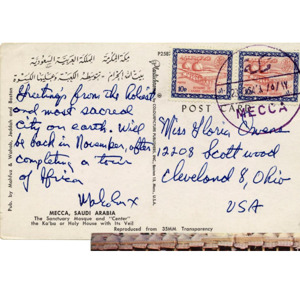 مكة المكرمة   المملكة العربية السعودية
بيت الله الحرام - تتوسطه الكعبة
P258
Greetings from the holiest
and most sacred
city on earth. Will
be back in November, after
completing a tour
of Africa
Malcolm X
MECCA, SAUDI ARABIA
The Sanctuary Mosque and "Center"
the Ka'ba or Holy House with its Veil
Pub. by Mahfuz & Wahab, Jeddah and Boston
10P
10P
مكة
MECCA
POST CARD
Miss Gloria Owens
2208 Scottwood
Cleveland 8, Ohio
USA
Reproduced from 35MM Transparency